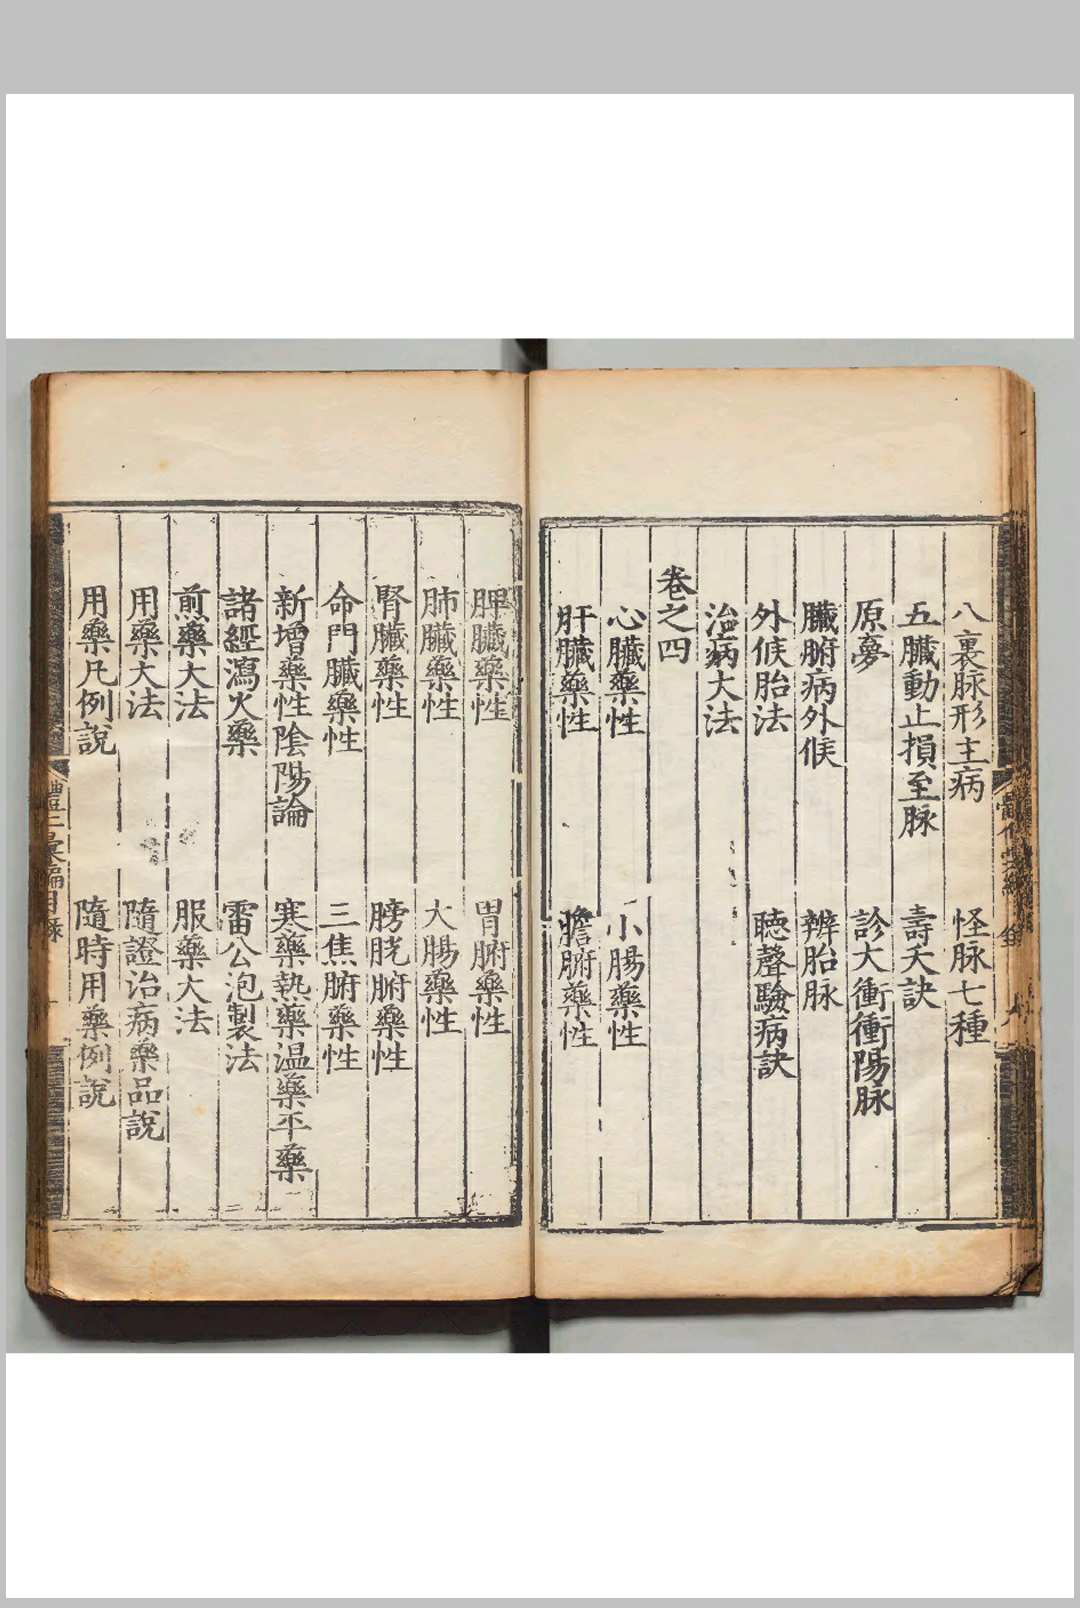 八裏脉形主病　怪脉七種
五臟動止損至脉　壽夭訣
原夢　診大衝衝陽脉
臟腑病外候　辨胎脉
外候胎法　聴聲驗病訣
治病大法
卷之四
心臟藥性　小腸藥性
肝臟藥性　膽腑藥性
脾臟藥性　胃腑藥性
肺臟藥性　大腸藥性
腎臟藥性　膀胱腑藥性
命門臟藥性　三焦腑藥性
新增藥性陰陽論　寒藥熱藥温藥平藥
諸經瀉火藥　雷公泡製法
煎藥大法　服藥大法
用藥大法　隨證治病藥品說
用藥凡例說　隨時用藥例說
彙編目錄